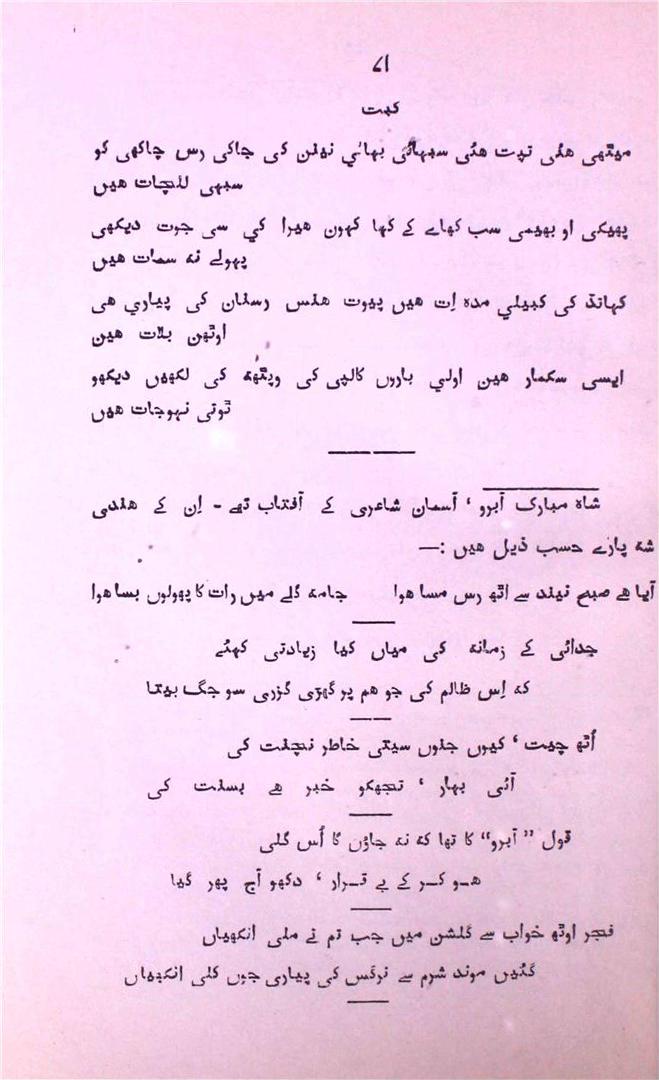 ۷۱
کبت
میٹھی ھئی تپت ھئی سبھائی بھائي نینن کی جاکی رس چاکھی کو
سبھی للچات ھیں
پھیکی او بھیمی سب کھاے کے کہا کہون ھیرا کي سی جوت دیکھی
پھولے نہ سمات ھیں
کھانڈ کی کبیلي مدہ اِت ھیں پیوت ھنس رسنان کی پیاري ھی
اوٹھن بلات ھین
ایسی سکمار ھین اولي باروں کالپی کی ویٹھہ کی لکھیں دیکھو
ٹوتی نہوجات ھیں
شاہ مبارک آبرو ، آسمان شاعری کے آفتاب تھے - اِن کے ھندی
شہ پارے حسب ذیل ھیں :—
آیا ھے صبح نیند سے اٹھ رس مسا ھوا جامہ گلے میں رات کا پھولوں بسا ھوا
جدائی کے زمانہ کی میاں کیا زیادتی کہئے
کہ اِس ظالم کی جو ھم پر گھڑی گزری سو جگ بیتا
اُٹھ چیت ، کیوں جنوں سیتی خاطر نچنت کی
آئی بہار ، تجھکو خبر ھے بسنت کی
قول ”آبرو“ کا تھا کہ نہ جاؤں گا اُس گلی
ھو کر کے بے قرار ، دکھو آج پھر گیا
فجر اوٹھ خواب سے گلشن میں جب تم نے ملی انکھیاں
گئیں موند شرم سے نرگس کی پیاری جوں کلی انکھیاں